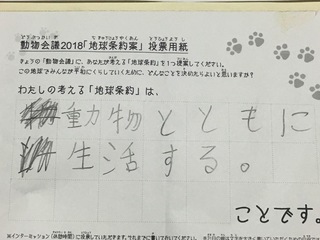 動物会議2018「地球条約案」投票用紙
きょうの「動物会議」に、あなたが考える「地球条約」を1つ提案してください。
この地球でみんなが平和にくらしていくために、どんなことを決めたらよいと思いますか?
わたしの考える「地球条約」は、
動物とともに
生活する。
ことです。